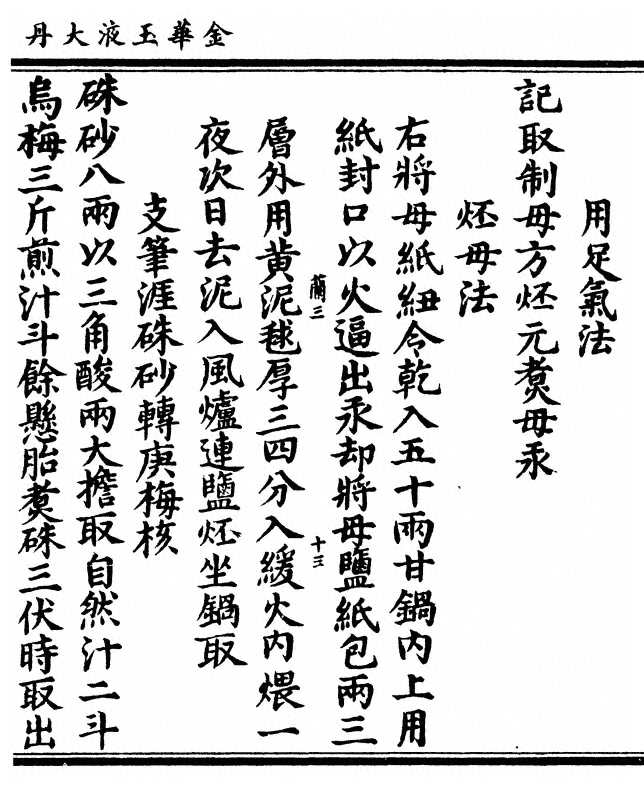 金華玉液大丹
用足氣法
記取制母方烶元煑母汞
烶母法
右將母紙紐令乾入五十兩甘鍋內上用
紙封口以火逼出汞却將母鹽紙包兩三
蘭三
十三
層外用黄泥毬厚三四分入緩火內煨一
夜次日去泥入風爐連鹽烶坐鍋取
支筆涯硃砂轉庚梅核
硃砂八兩以三角酸兩大擔取自然汁二斗
烏梅三斤煎汁斗餘懸胎煑硃三伏時取出